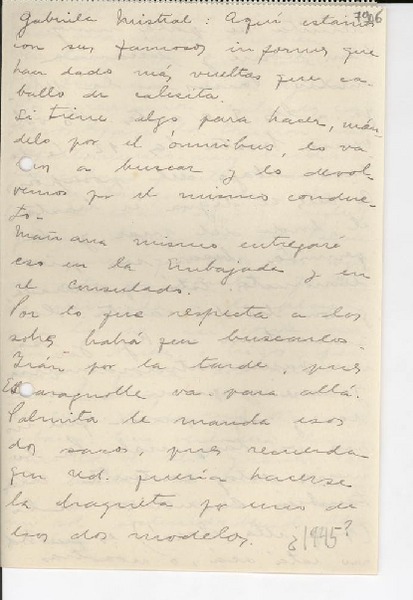 796
Gabriela Mistral: Aquí estamos
con sus famosos informes que
han dado más vueltas que ca-
ballo de calesita.
Si tiene algo para hacer, mán-
delo por el ómnibus, lo va
a buscar y lo devol-
vemos por el mismo conduc-
to.
Mañana mismo entregaré
eso en la Embajada y en
el Consulado.
Por lo que respecta a los
sobres habrá que buscarlos.
Irán por la tarde, pues
va para allá.
Palmita le manda esos
dos sacos, pues recuerda
que Ud. quería hacerse
la chaqueta por uno de
esos dos modelos.
¿1945?